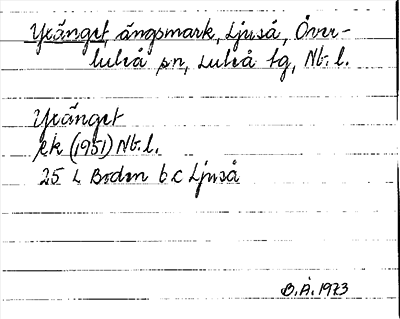 Yxänget, ängsmark, Ljuså, Över-
luleå sn, Luleå tg, Nb.l.
Yxänget
Ek (1951) Nb.l.
25 L Boden b c Ljuså
B.Å. 1973